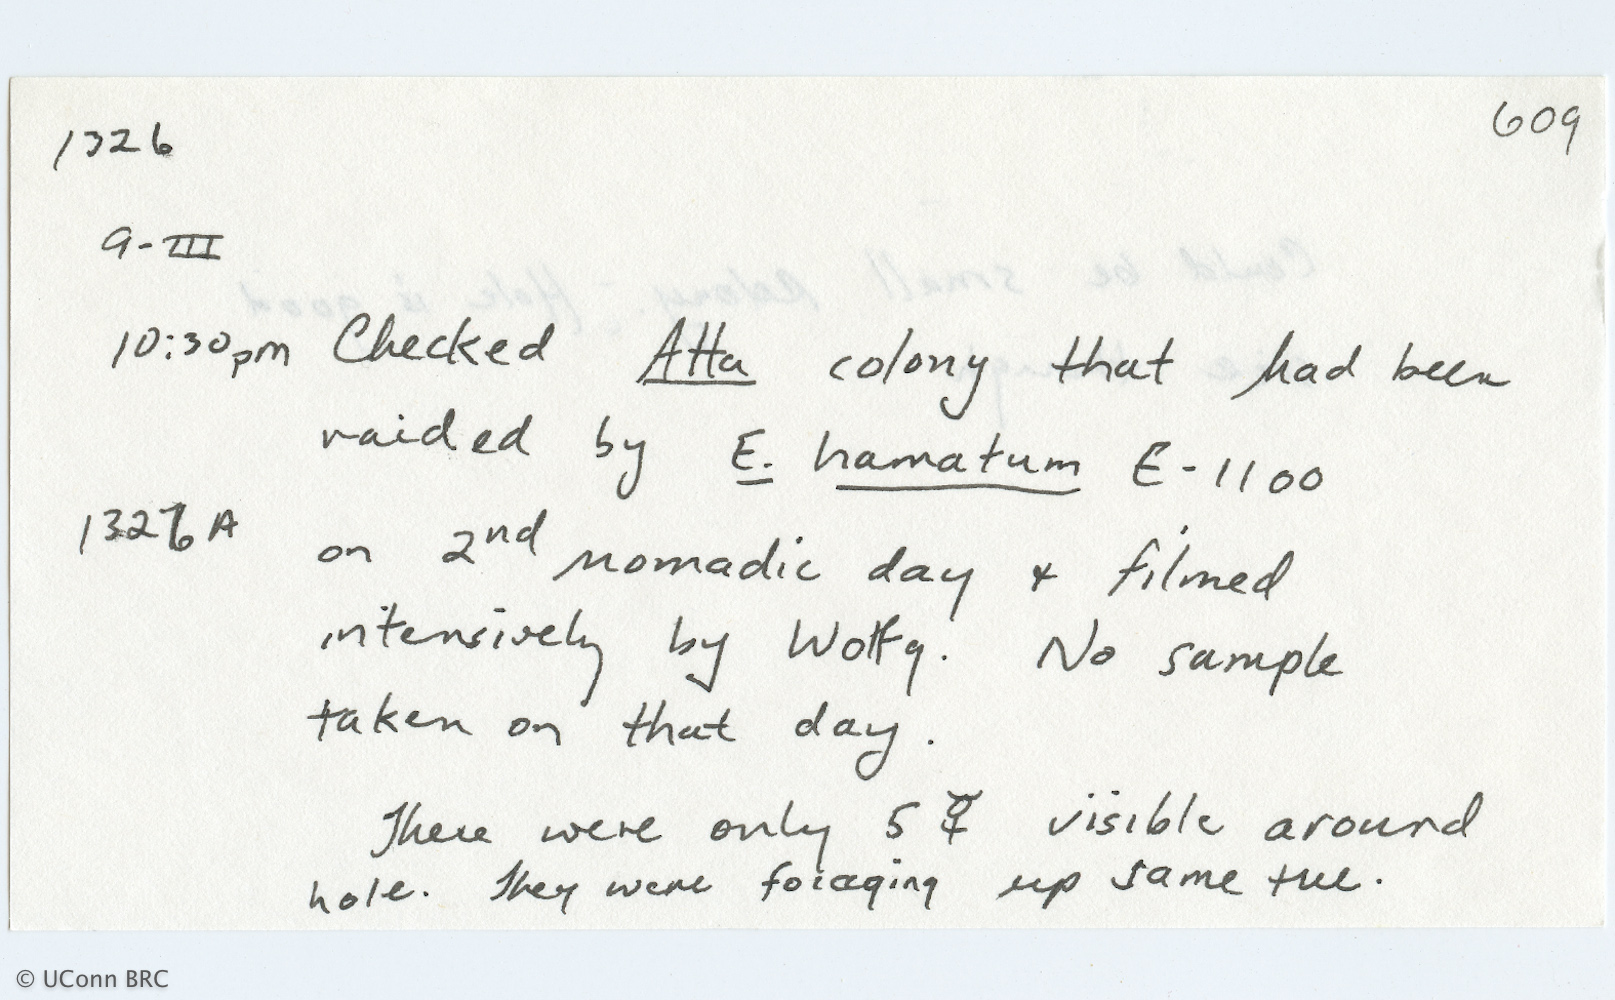 1326
609
9-III
10:30pm Checked Atta colony that had been
raided by E. hamatum E-1100
1326A
on 2nd nomadic day & filmed
intensively by Wolfg. No sample
taken on that day.
There were only 5 ☿ visible around
hole. They were foraging up same tree.
© UConn BRC